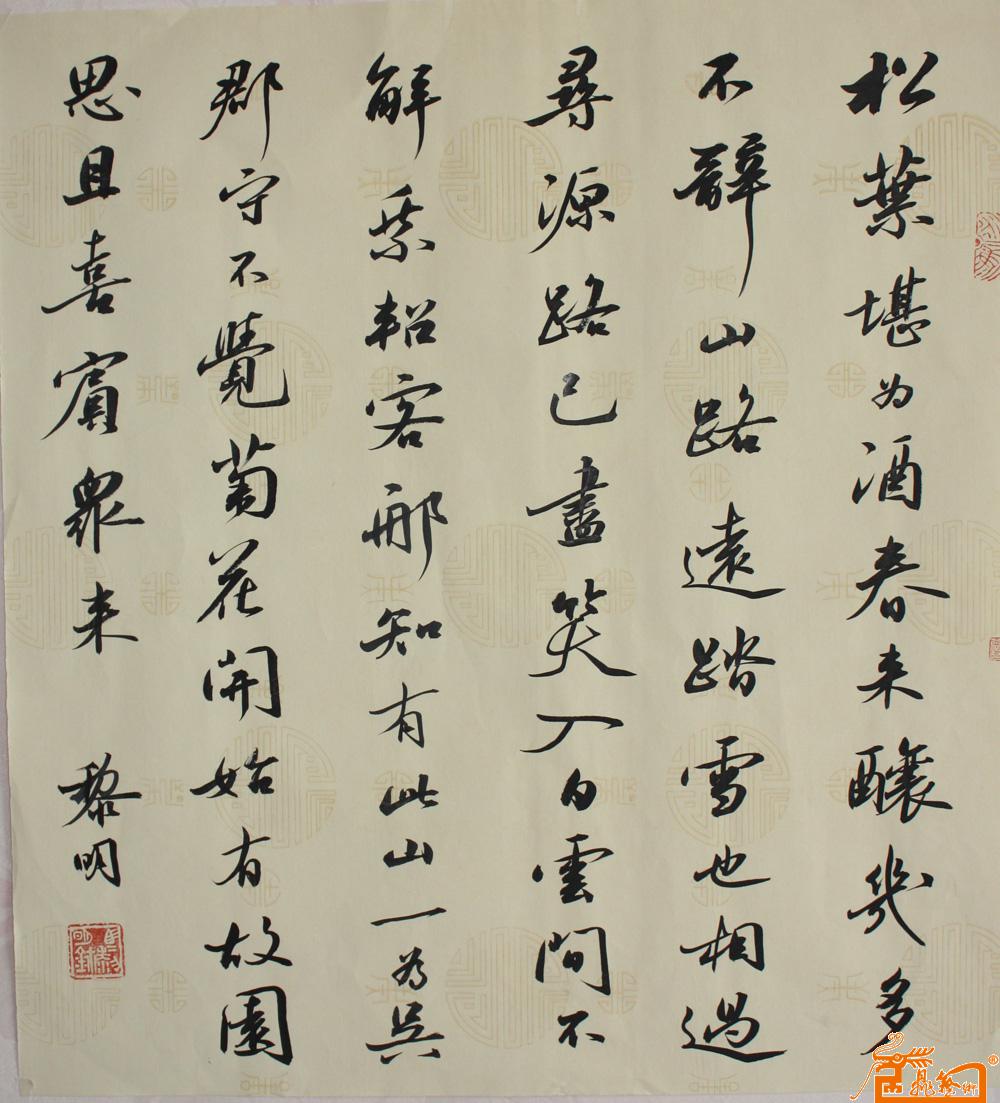 松葉堪为酒春来釀幾多
不辭山路遠踏雪也相過
尋源路已盡笑入白雲間不
解乘軺客那知有此山一為吳
郡守不覺菊花開始有故園
思且喜賓眾来
黎明